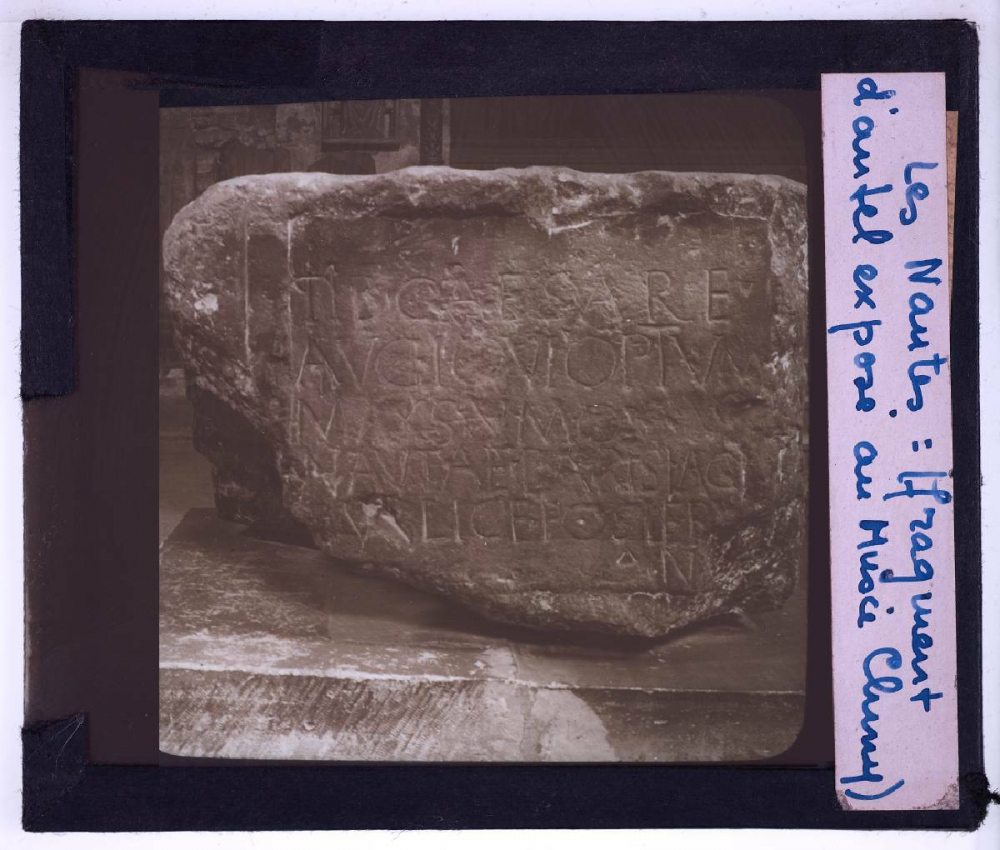 TIB CAESARE
AVG IOVI OPTVM
MAXSVMO
NAVTAE PARISIAC
VBLICE POSIER
Les Nautes : (fragment
d'autel exposé au Musée Cluny)